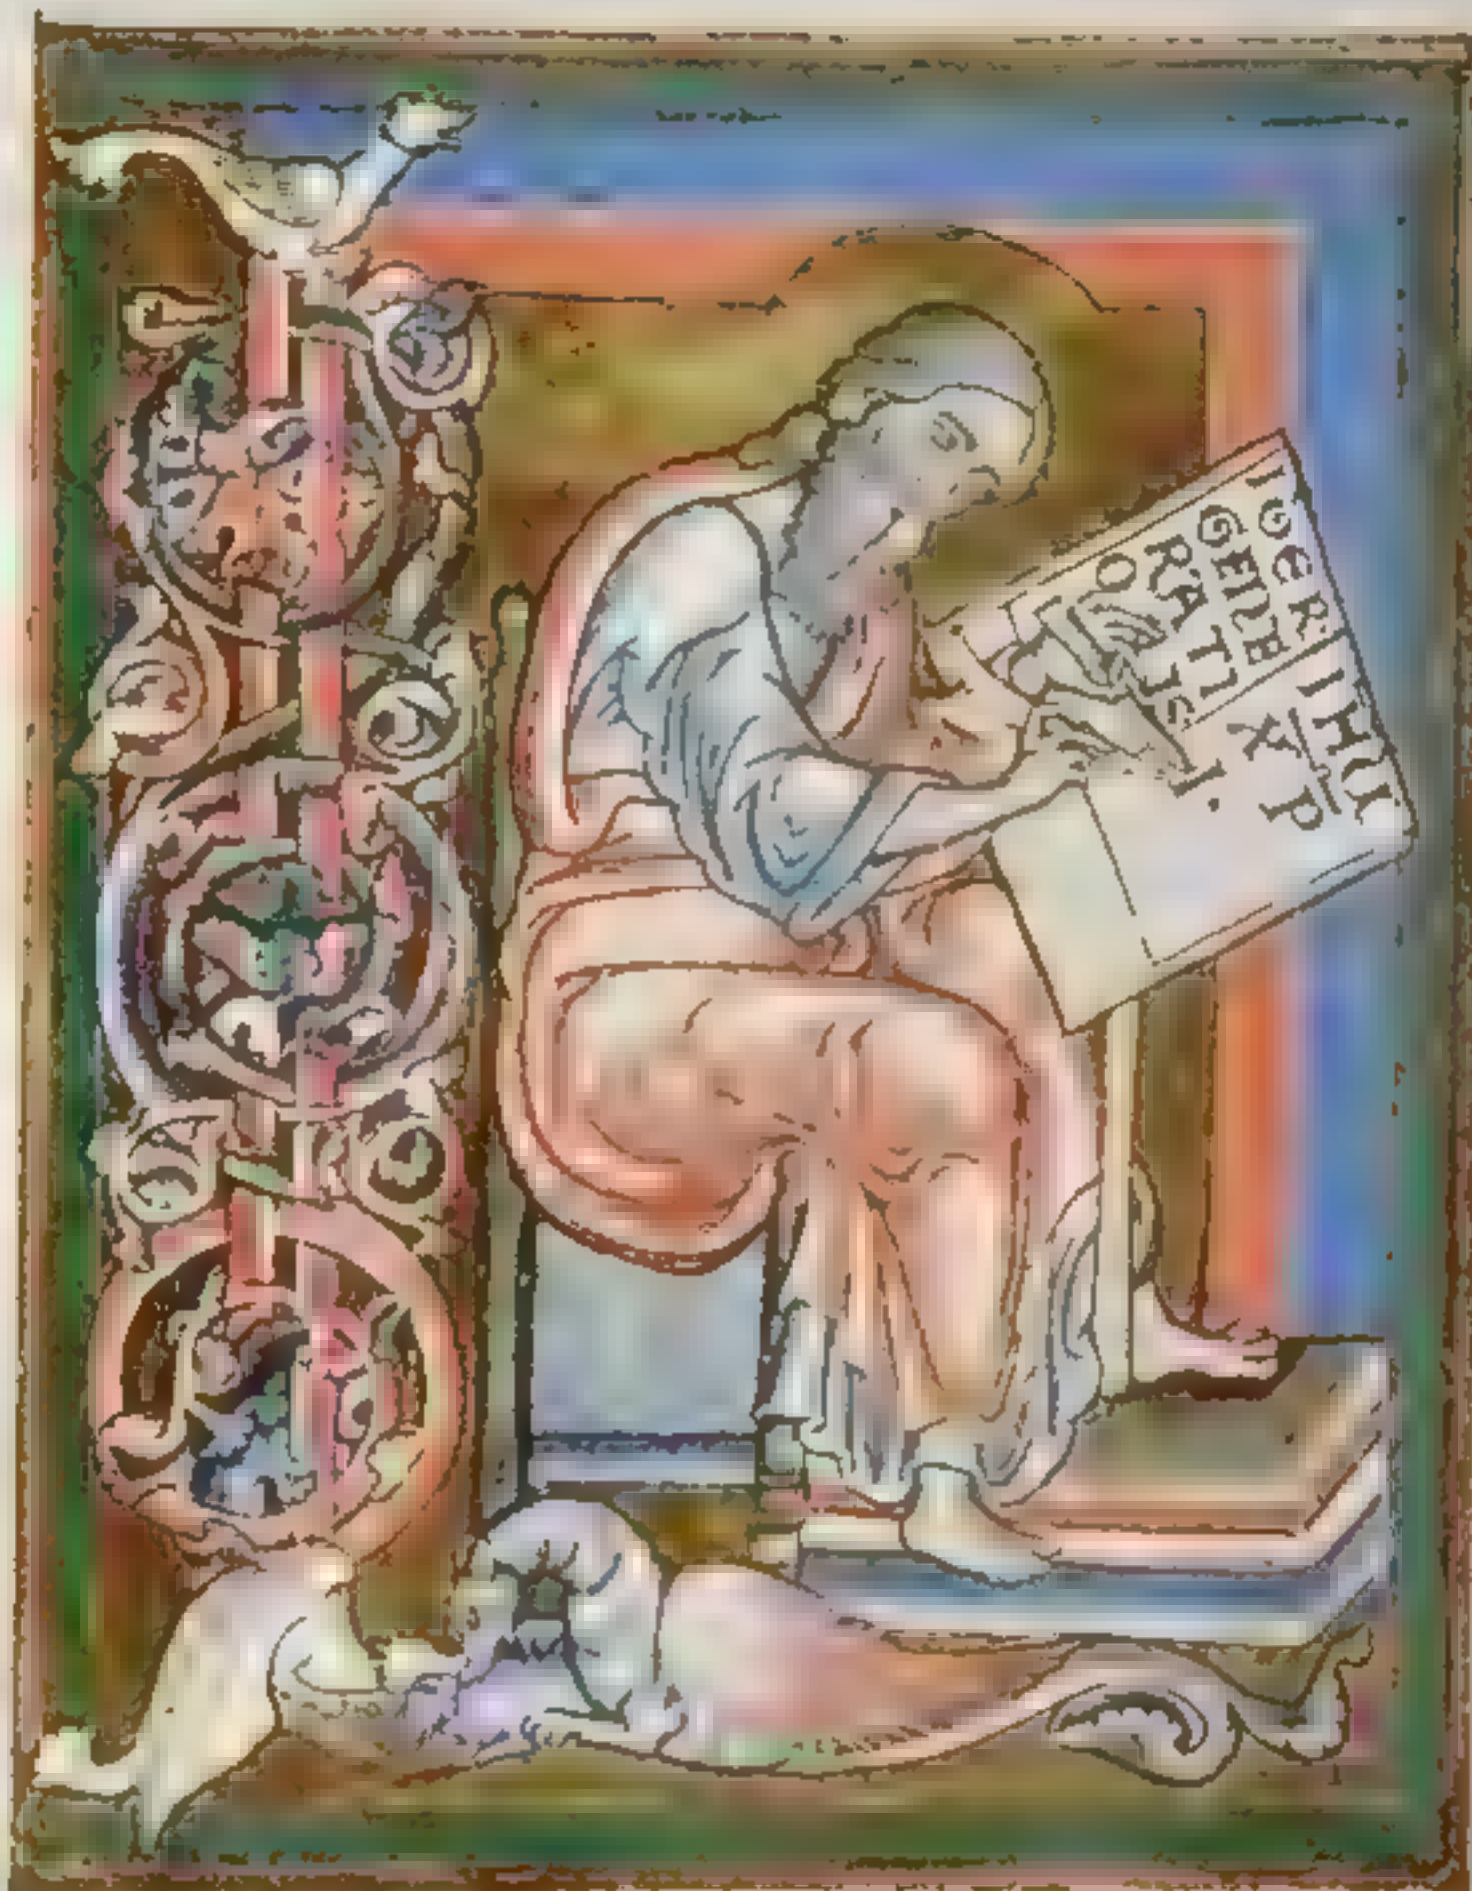 IBER
GENE
RATI
O IS
IHU
XP
I.